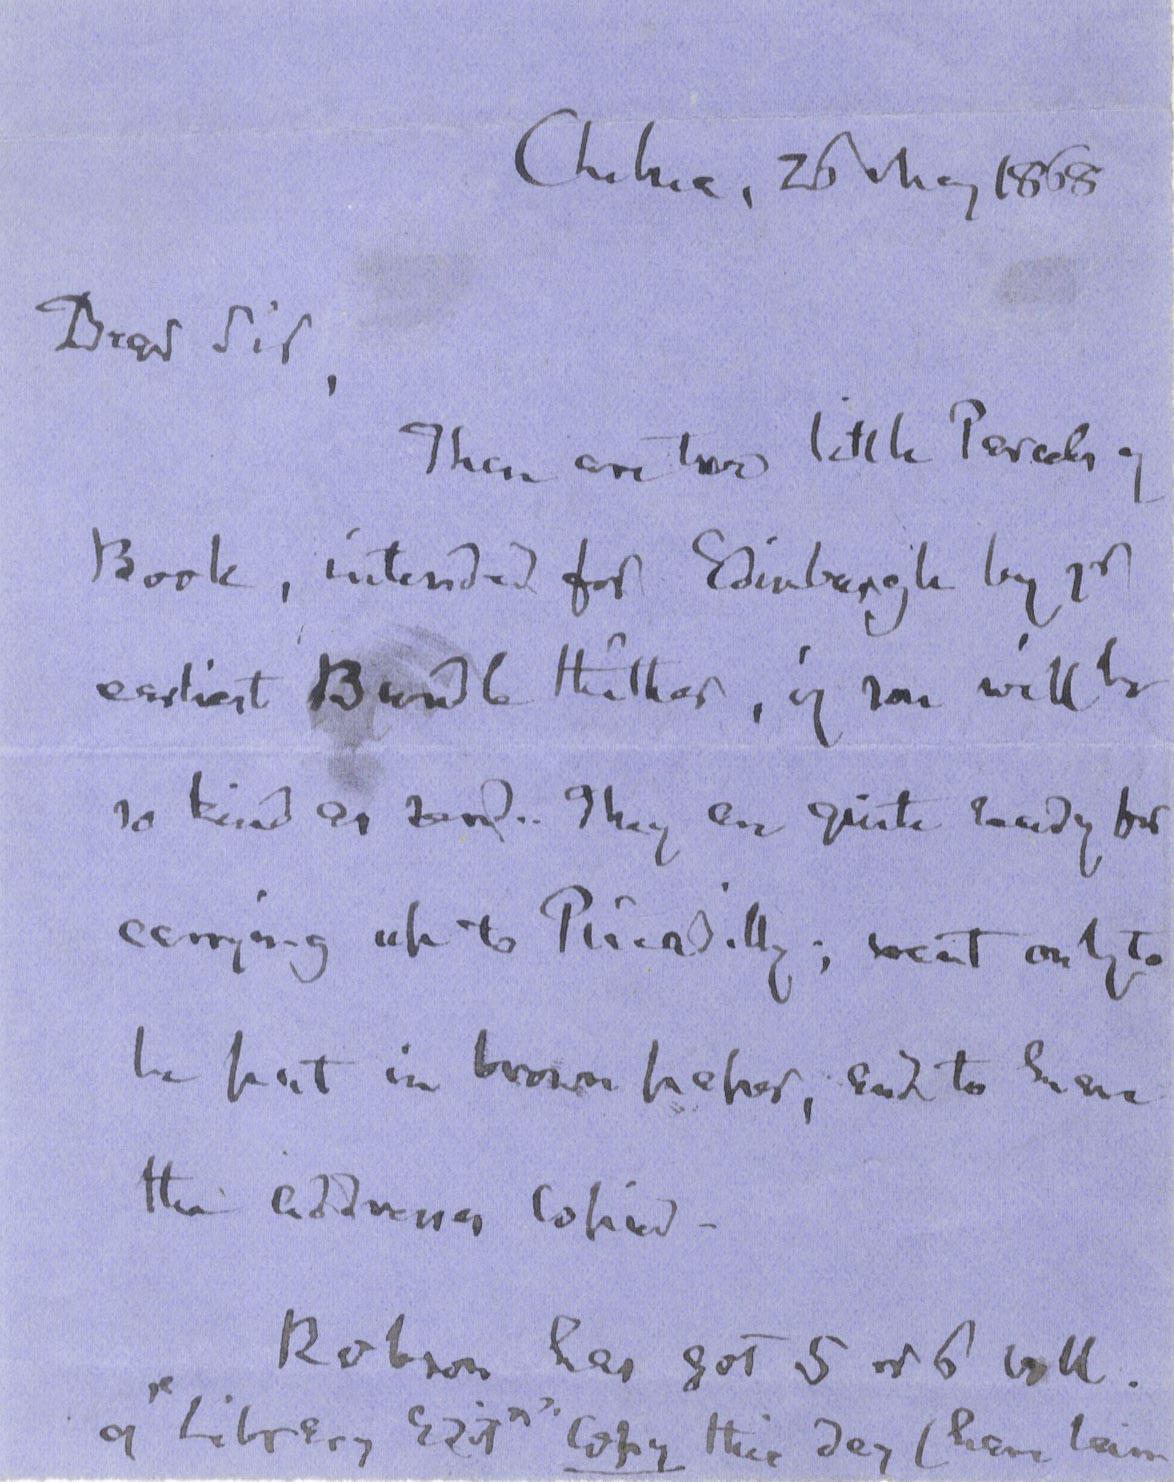 Chelsea, 26 May 1868
Dear Sir,
There are two little Parcels of
Books, intended for Edinburgh by yr
earliest Bundle thither, if you will be
so kind as send. They are quite ready for
carrying up to Piccadilly; wait only to
be put in brown paper, and to have
their addresses copied -
Robson has got 5 or 6 voll.
of "Library Editn" Copy this day (have lain